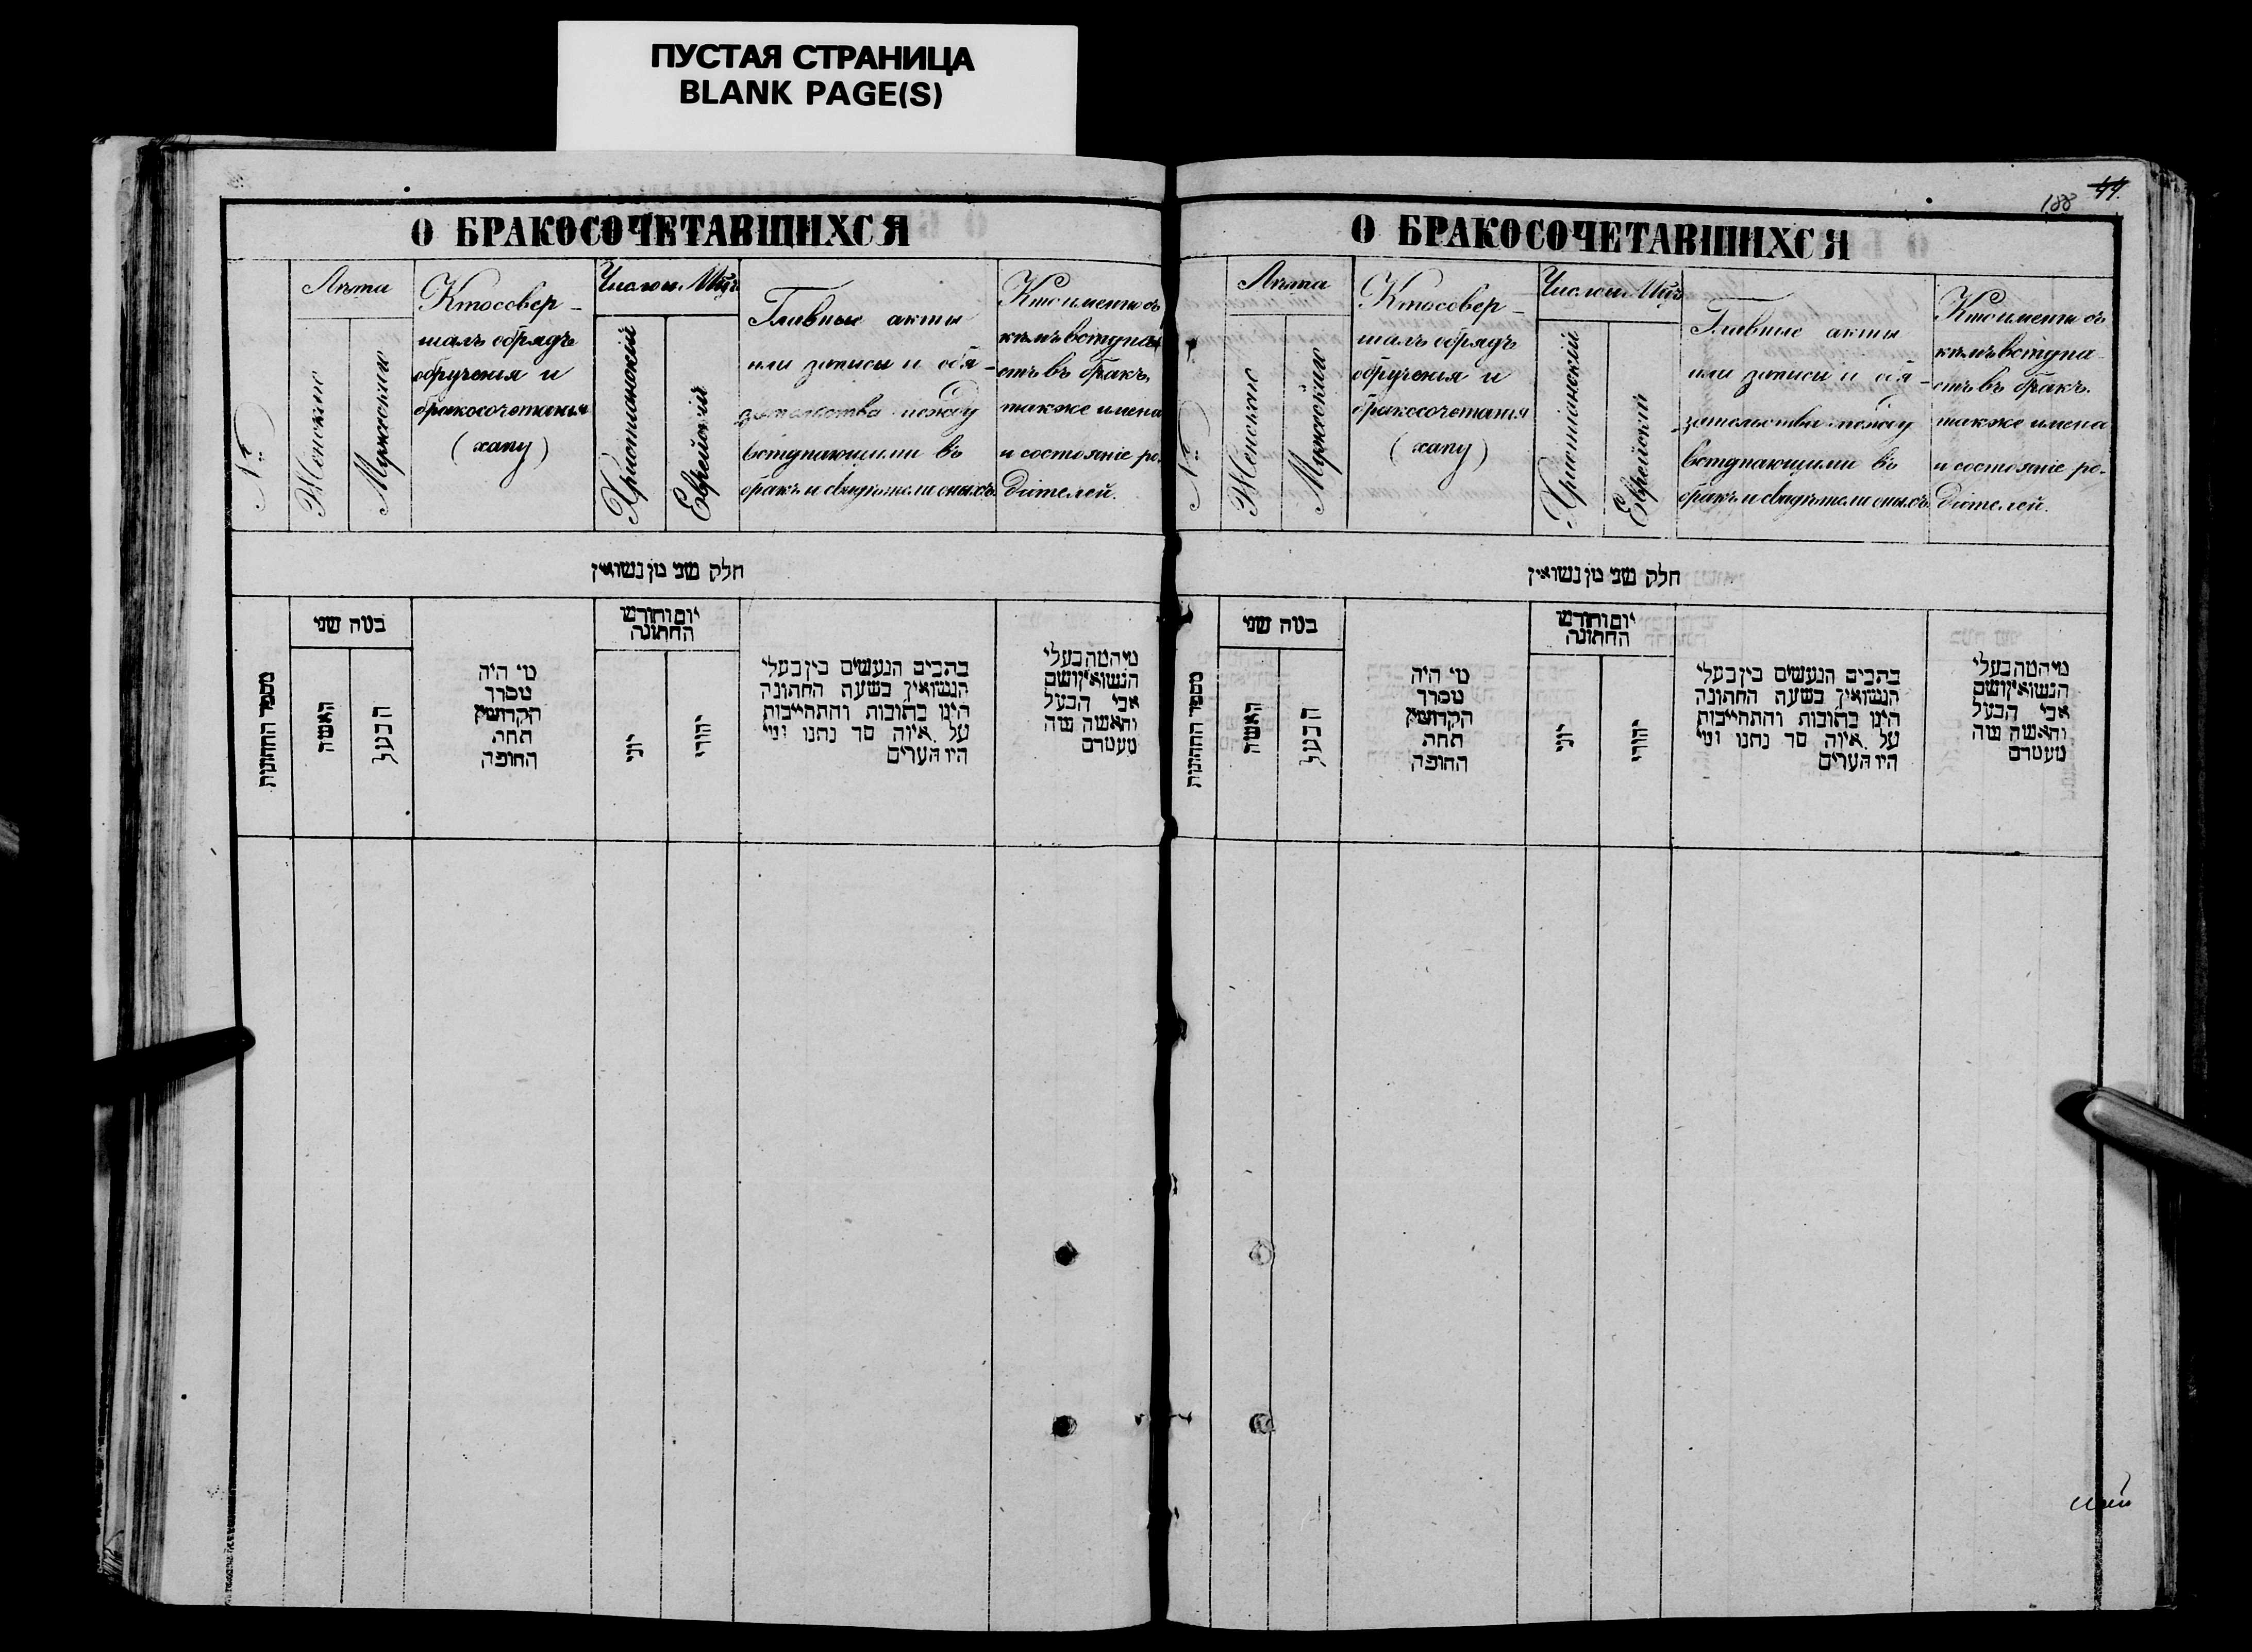 ПУСТАЯ СТРАНИЦА
BLANK PAGE(S)
О БРАКОСОЧЕТАВШИХСЯ
№
Лѣта
Женскаго
Мужескаго
Кто совер-
шалъ обрядъ
обрученія и
бракосочетанія
(хупу)
Число и Мѣц
Христіанскій
Еврейскій
Главные акты
или записи и обя-
зательства между
вступающими въ
бракъ и свидѣтели оныхъ
Кто именно съ
кѣмъ вступа
етъ въ бракъ,
также имена
и состояніе ро-
дителей.
חלק שני מן נשואין
מספר החתונות
במה שני
האשה
הבעל
מי היה
מסדר
הקדושין
תחת
החופה
יום וחודש
החתונה
יוני
יהודי
כתבים הנעשים בין בעלי
הנשואין בשעת החתונה
היינו כתובות והתחייבות
על איזה סך נתנו ומי
היו העדים
מי המה בעלי
הנשואין ושם
אבי הבעל
והאשה ומה
מעמדם
188 44.
О БРАКОСОЧЕТАВШИХСЯ
№
Лѣта
Женскаго
Мужескаго
Кто совер-
шалъ обрядъ
обрученія и
бракосочетанія
(хупу)
Число и Мѣц
Христіанскій
Еврейскій
Главные акты
или записи и обя-
зательства между
вступающими въ
бракъ и свидѣтели оныхъ
Кто именно съ
кѣмъ вступа
етъ въ бракъ.
также имена
и состояніе ро-
дителей.
חלק שני מן נשואין
מספר החתונות
במה שני
האשה
הבעל
מי היה
מסדר
הקדושין
תחת
החופה
יום וחודש
החתונה
יוני
יהודי
כתבים הנעשים בין בעלי
הנשואין בשעת החתונה
היינו כתובות והתחייבות
על איזה סך נתנו ומי
היו העדים
מי המה בעלי
הנשואין ושם
אבי הבעל
והאשה ומה
מעמדם